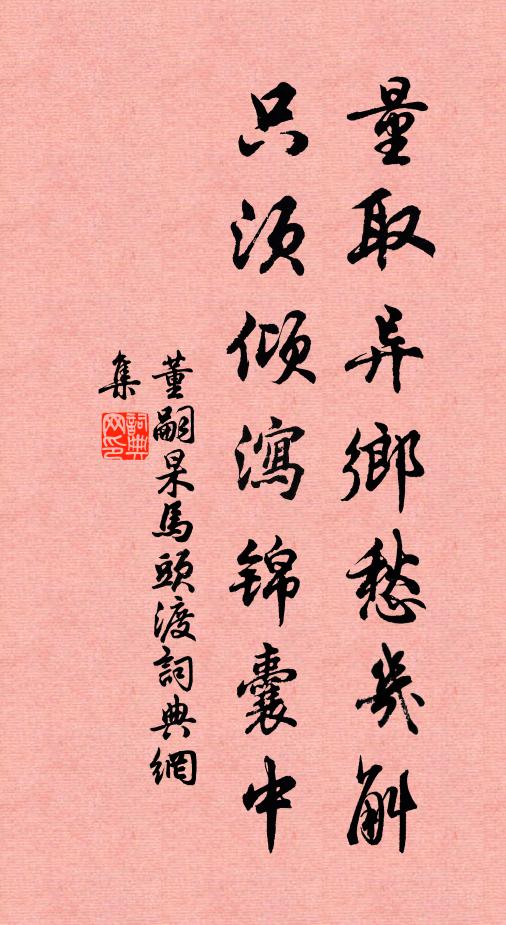 量取异鄉愁幾斛
只須傾瀉锦囊中
董嗣杲馬頭渡詞典網
集
詞典網印